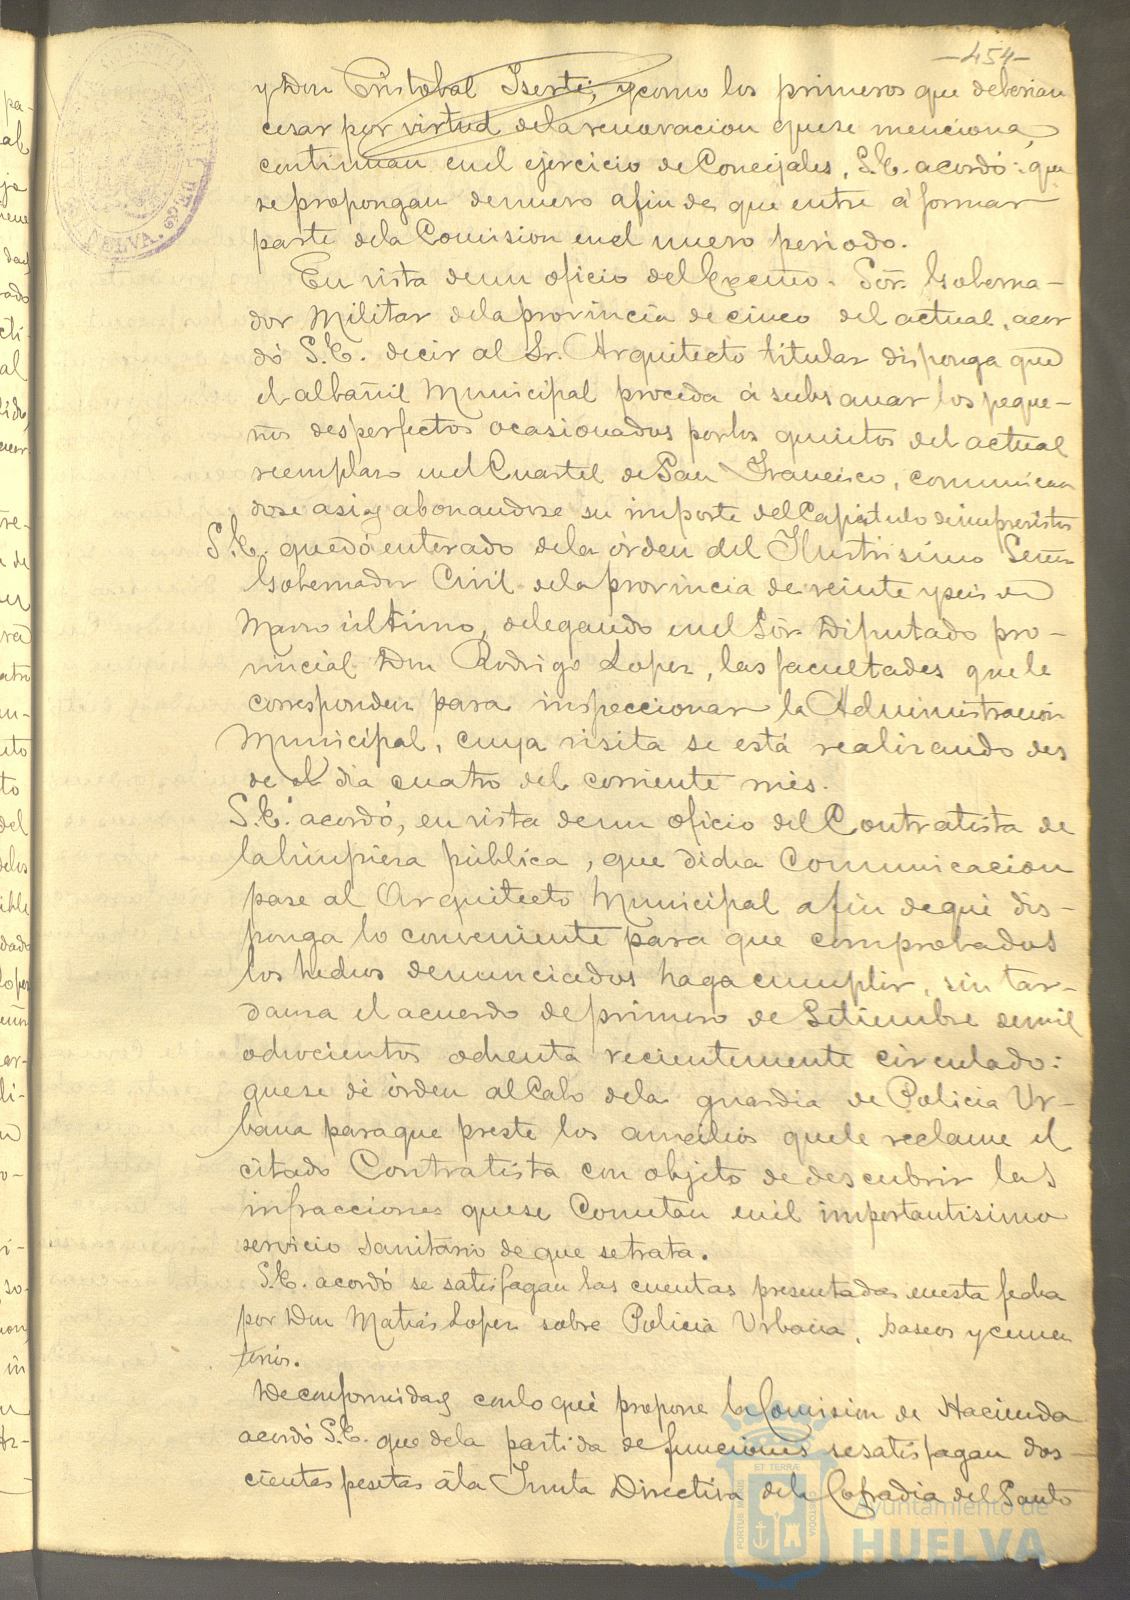 -454-
y Don Cristobal Iserte, y como los primeros que deberian
cesar por virtud de la renovacion que se menciona,
continuan en el ejercicio de Concejales, S.E. acordó: que
se propongan de nuevo afin de que entre á formar
parte de la Comision en el nuevo periodo.
En vista de un oficio del Excmo. Sör. Goberna-
dor Militar de la provincia de cinco del actual, acor
dó S.E. decir al Sr. Arquitecto titular disponga que
el albañil Municipal proceda á subsanar los peque-
ños desperfectos ocasionados por los quintos del actual
reemplazo en el Cuartel de San Francisco, comunican
dose asi y abonandose su importe del Capitulo de imprevistos
S.E. quedó enterado de la órden del Ilustrisimo Señor
Gobernador Civil de la provincia de veinte y seis de
Marzo último, delegando en el Sör Diputado pro-
vincial Don Rodrigo Lopez, las facultades que le
corresponden para inspeccionar la Administracion
Municipal, cuya visita se está realizando des
de el dia cuatro del corriente mes.
S.E. acordó, en vista de un oficio del Contratista de
la limpieza pública, que dicha comunicacion
pase al Arquitecto Municipal afin de que dis-
ponga lo conveniente para que comprobados
los hechos denunciados haga cumplir, sin tar-
danza el acuerdo de primero de Setiembre de mil
ochocientos ochenta recientemente circulado:
que se dé órden al Cabo de la guardia de Policia Ur-
bana para que preste los auxilios que le reclame el
citado Contratista con objeto de descubrir las
infracciones que se Cometan en el importantisimo
servicio sanitario de que se trata.
S.E. acordó se satisfagan las cuentas presentadas en esta fecha
por Don Matias Lopez sobre Policia Urbana, paseos y cemen
terios.
De conformidad con lo que propone la Comision de Hacienda
acordó S.E. que de la partida de funciones se satisfagan dos-
cientas pesetas á la Junta Directiva de la Cofradia del Santo
PORTUS MARIS
ET TERRAE
CUSTODIA
Ayuntamiento de
HUELVA